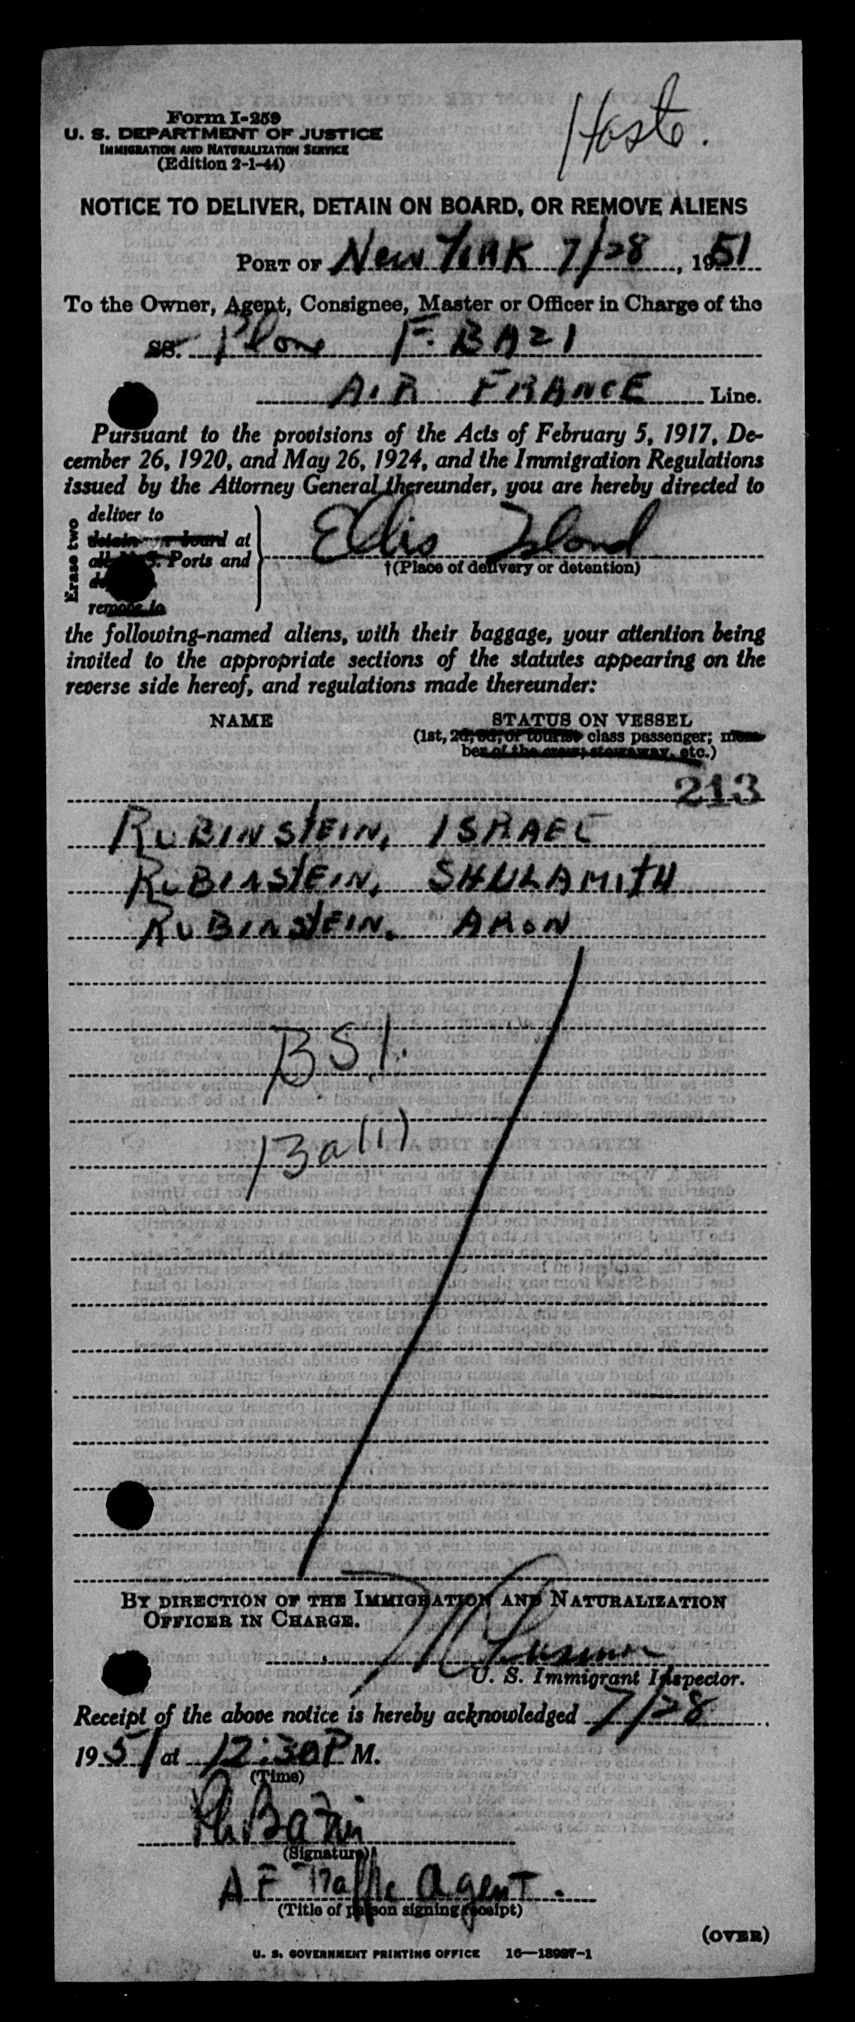 Haste.
Form I-259
U. S. DEPARTMENT OF JUSTICE
IMMIGRATION AND NATURALIZATION SERVICE
(Edition 2-1-44)
NOTICE TO DELIVER, DETAIN ON BOARD, OR REMOVE ALIENS
PORT OF New York 7/28, 1951
To the Owner, Agent, Consignee, Master or Officer in Charge of the
SS. Plane F. BAZI
AIR FRANCE Line.
Pursuant to the provisions of the Acts of February 5, 1917, De-
cember 26, 1920, and May 26, 1924, and the Immigration Regulations
issued by the Attorney General thereunder, you are hereby directed to
Erase two
deliver to
detain on board at
all U. S. Ports and
remove to
Ellis Island
†(Place of delivery or detention)
the following-named aliens, with their baggage, your attention being
invited to the appropriate sections of the statutes appearing on the
reverse side hereof, and regulations made thereunder:
NAME STATUS ON VESSEL
(1st, 2d, 3d, or tourist class passenger; mem-
ber of the crew, stowaway, etc.)
213
RUBINSTEIN, ISRAEL
RUBINSTEIN, SHULAMITH
RUBINSTEIN, AMON
B.S.I.
13a(1)
BY DIRECTION OF THE IMMIGRATION AND NATURALIZATION
OFFICER IN CHARGE.
U. S. Immigrant Inspector.
Receipt of the above notice is hereby acknowledged 7/28
1951 at 12:30 P M.
(Time)
(Signature)
AF Traffic Agent.
(Title of person signing receipt)
(OVER)
U. S. GOVERNMENT PRINTING OFFICE